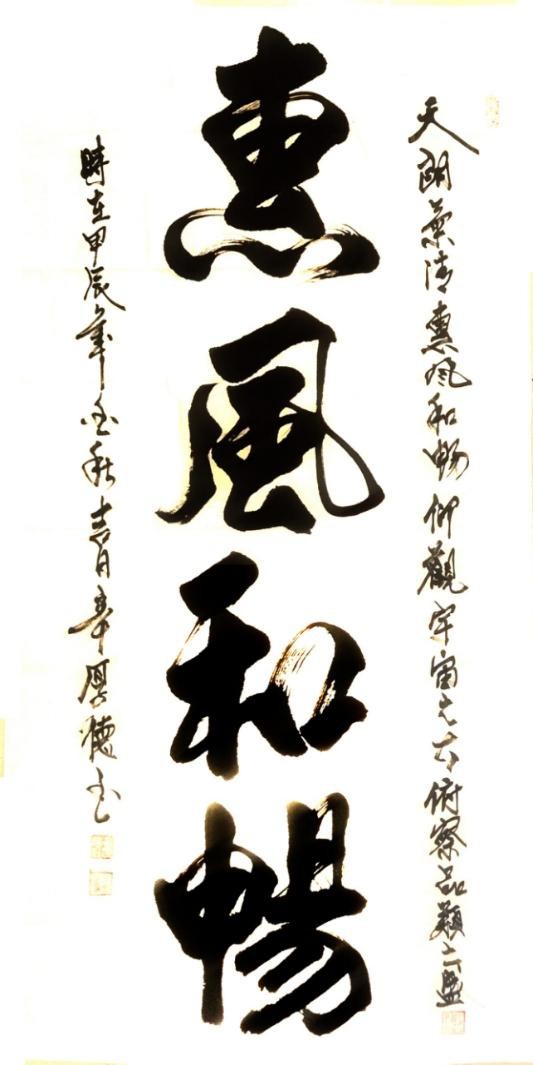 天朗氣清惠風和暢仰觀宇宙之大俯察品類之盛
惠風和暢
時在甲辰年金秋吉月厚德书